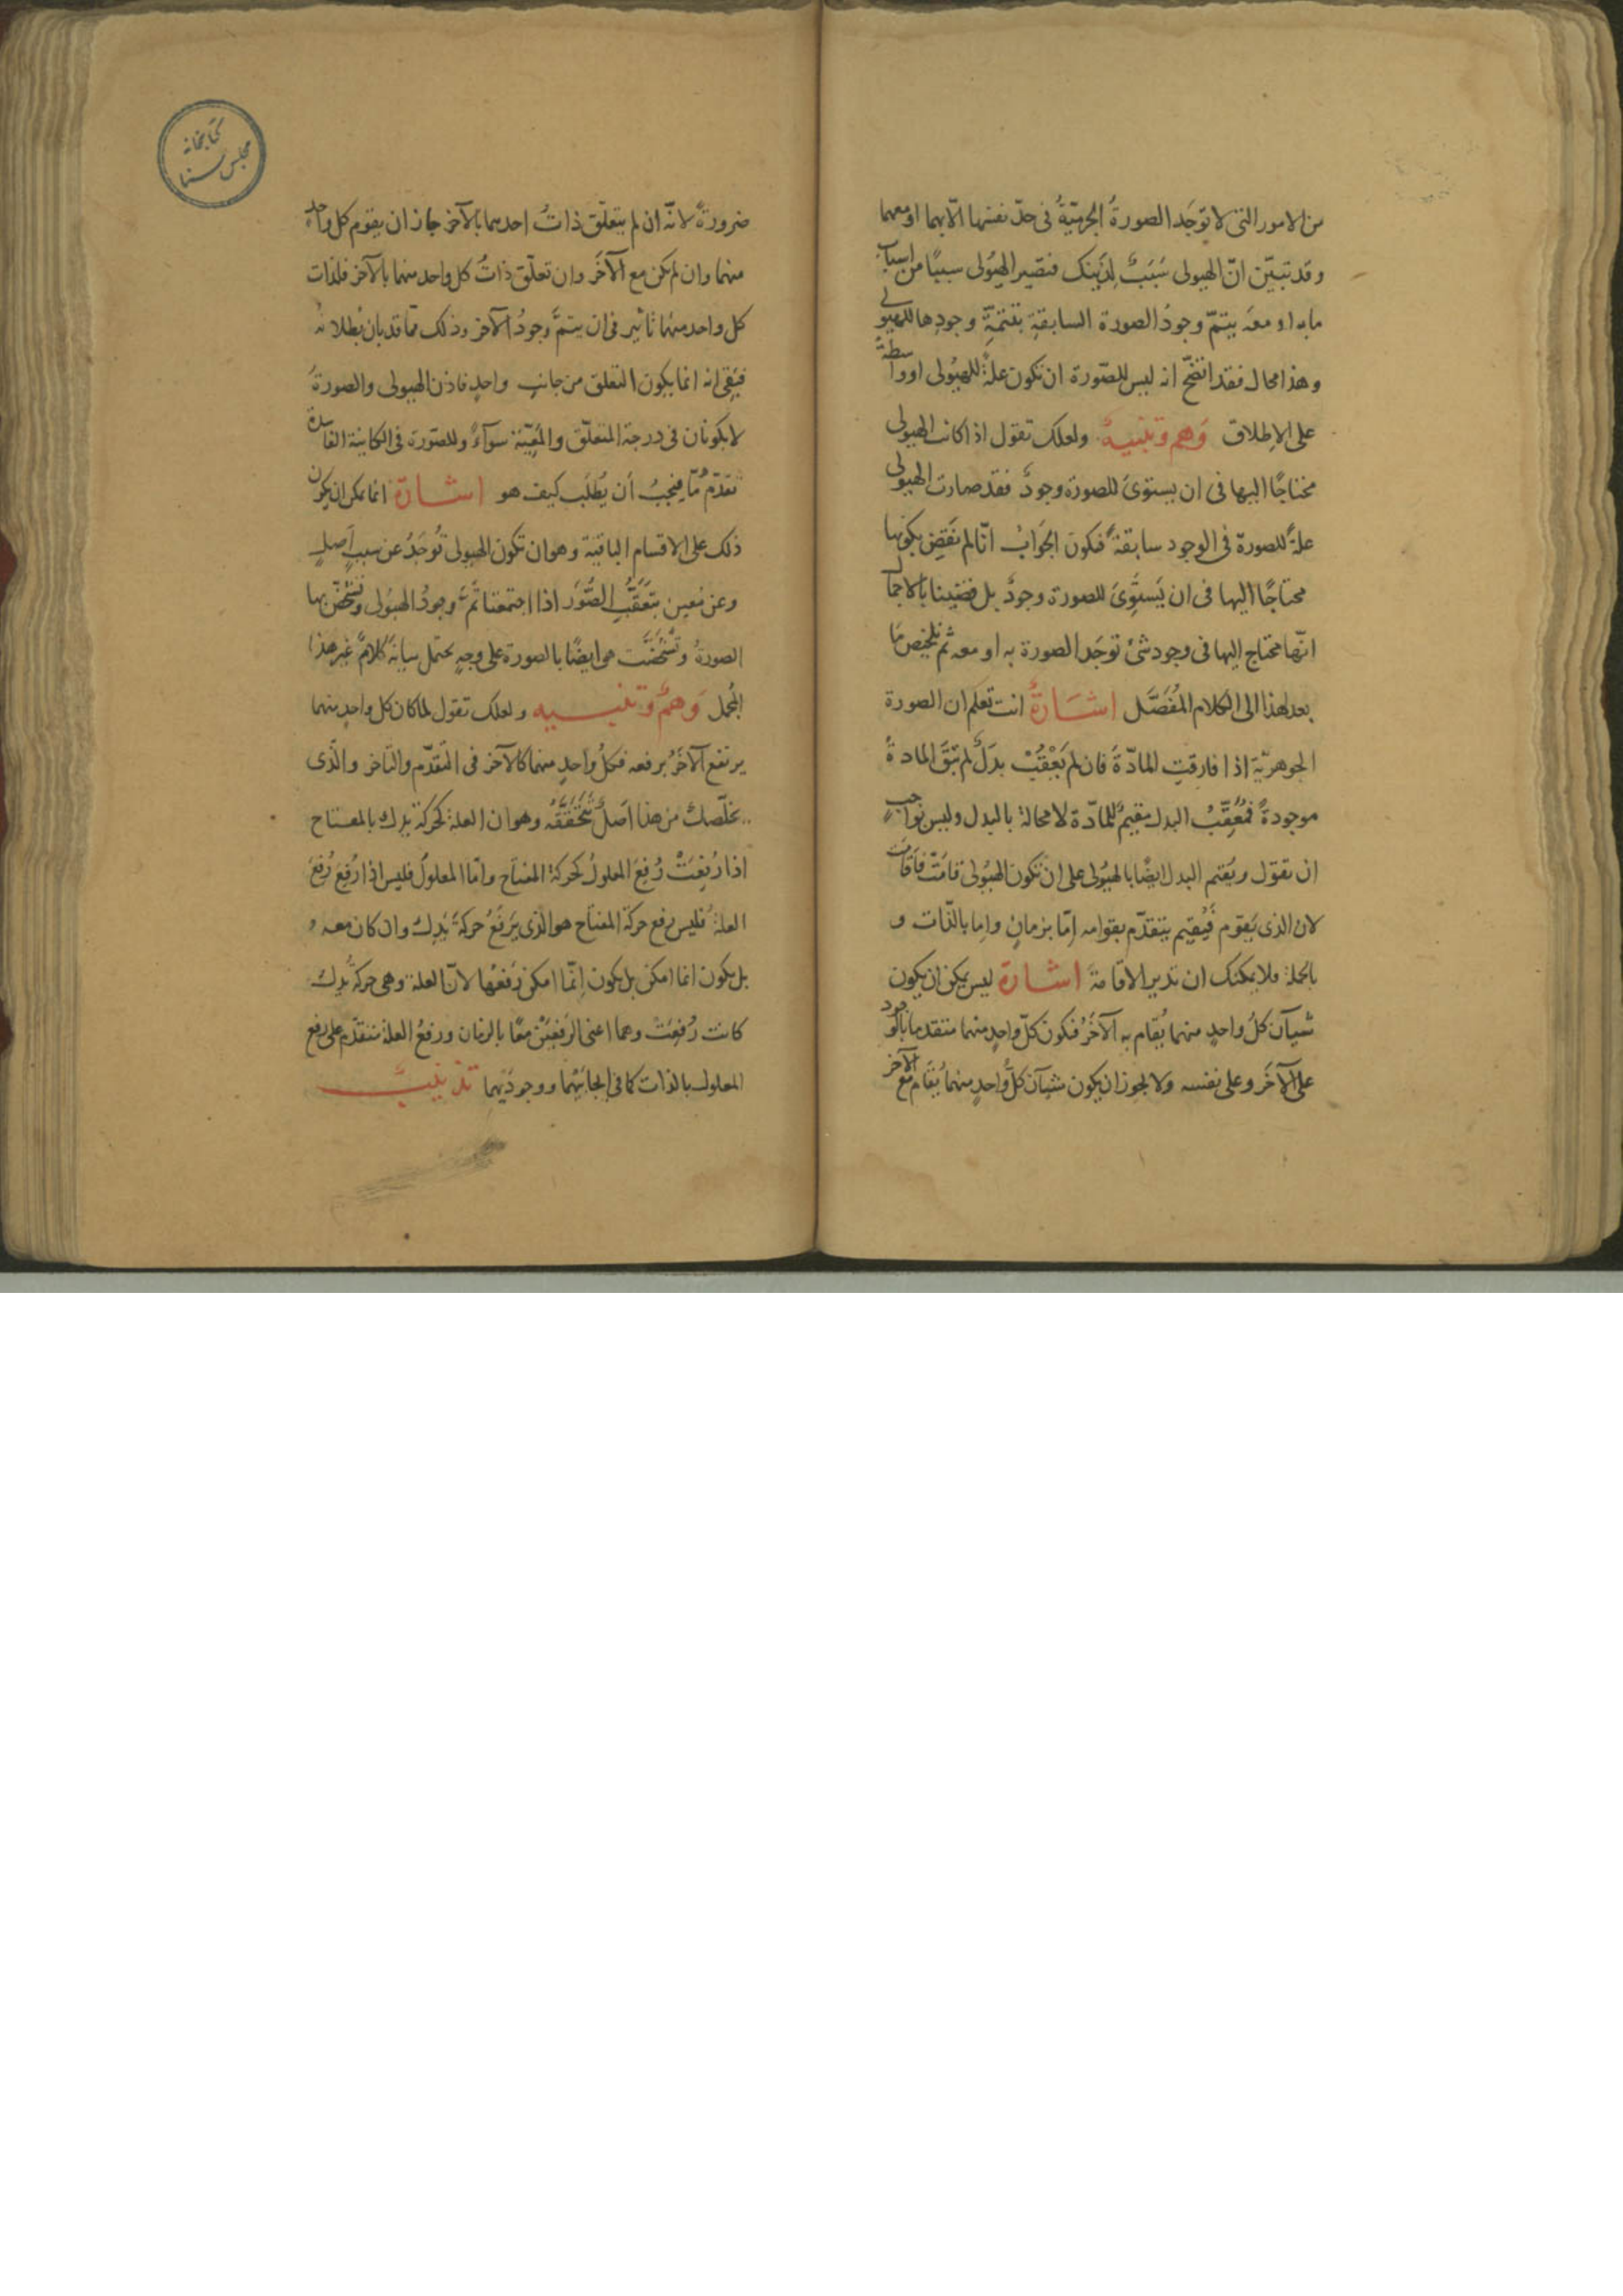 من الامور التى لا توجَد الصورةُ الجرميّةُ فى حدّ نفسها الّا بهما او معهما
وقد تبيّن انّ الهيولى سَبَبٌ لِذَينك فتصير الهيُولى سببًا من اسباب
ما به او معه يتمّ وجودُ الصورة السابقةِ بتتمّةِ وجودِها للهيولى
وهذا محال فقد اتّضح انه ليس للصّورة ان تكون علةً للهيُولى او واسطةً
على الاِطلاق وَهم وتنبيهٌ ولعلك تقول اذا كانت الهيولى
محتاجًا اليها فى ان يستوىَ للصورة وجودٌ فقد صارت الهيولى
علةً للصورة فى الوجود سابقةً فيكون الجَوابُ انّا لم نَقضِ بكونها
محتاجًا اليها فى ان يَستَوِىَ للصورة وجودٌ بل قضينا بالاجمال
انّها محتاج اليها فى وجود شئ توجَد الصورة به او معه ثم تلخيص ما
بعد هذا الى الكلام المُفصَّل اشَارَةٌ انت تعلم ان الصورة
الجوهريّة اذا فارقتِ المادّةَ فان لم يَعْقُبْ بدَلٌ لم تبقَ المادةُ
موجودةً فمُعَقِّبُ البدل مقيمٌ للمادّة لا محالة بالبدل وليس بواجبٍ
ان نقول ويُقيم البدل ايضًا بالهيُولى على ان تكون الهيُولى قامَتْ فاقامت
لان الذى يَقوم فيُقيم يتقدّم بقوامه اِمّا بزمانٍ واِما بالذّات و
بالجملة فلا يمكنك ان تدير الاقامةَ اشارة ليس يمكن ان يكون
شيآن كلُّ واحدٍ منهما يُقام به الآخَرُ فيكون كلّ واحدٍ منهما متقدما بالوجود
على الآخَر وعلى نفسه ولا يجوز ان يكون شيآن كلُّ واحدٍ منهما يُقام مع الآخر
ضرورةً لانّه ان لم يتعلّق ذاتُ احدهما بالآخر جاز ان يقوم كل واحد
منهما وان لم يكن مع الآخَر وان تعلّق ذاتُ كل واحد منهما بالآخر فلذات
كل واحد منهما تاثير فى ان يتمَّ وجودُ الآخر وذلك ممّا قد بان بُطلانهُ
فبقى انه انما يكون التعلق من جانبٍ واحدٍ فاذن الهيولى والصورةُ
لا يكونان فى درجة التعلّق والمَعِيّة سوآءً وللصّورة فى الكاينة الفاسدة
تقدّمٌ مّا فيجبُ أن يُطلَب كيف هو اشارة انما يمكن ان يكون
ذلك على الاقسام الباقية وهو ان تكون الهيولى تُوجَدُ عن سببٍ اَصلٍ
وعن مُعين بتَعَقُّبِ الصُّوَر اذا اجتمعتا تمَّ وجودُ الهيولى وتشخّص بها
الصورةُ وتشخّصَت هى ايضًا بالصورة على وجهٍ يحتمل بيانُه كَلامًا غير هذا
المُجمل وَهمٌ وتنبيه ولعلك تقول لما كان كل واحدٍ منهما
يرتفع الآخَرُ برفعه فكلُّ واحدٍ منهما كالآخر فى التقدّم والتأخر والّذى
يخلّصك من هذا اَصلٌ تتحقّقه وهو ان العلة كحركة يدك بالمفتاح
اذا رُفِعَتْ رُفِعَ المعلولُ كحركة المفتاح وامّا المعلولُ فليس اذا رُفِعَ رُفِعَ
العلةُ فليس رفع حركة المفتاح هو الذى يَرفَعُ حركةَ يدِك وان كان معه و
بل يكون انما امكن بل يكون اِنّما امكن رَفعُها لانّ العلة وهى حركة يدِك
كانت رُفِعَتْ وهما اعنى الرَفعَيْن معًا بالزمان ورفعُ العلة متقدّم على رفع
المعلول بالذات كما فى ايجابَيْهما ووجودَيهما تذنيبٌ
كتابخانه
مجلس سنا